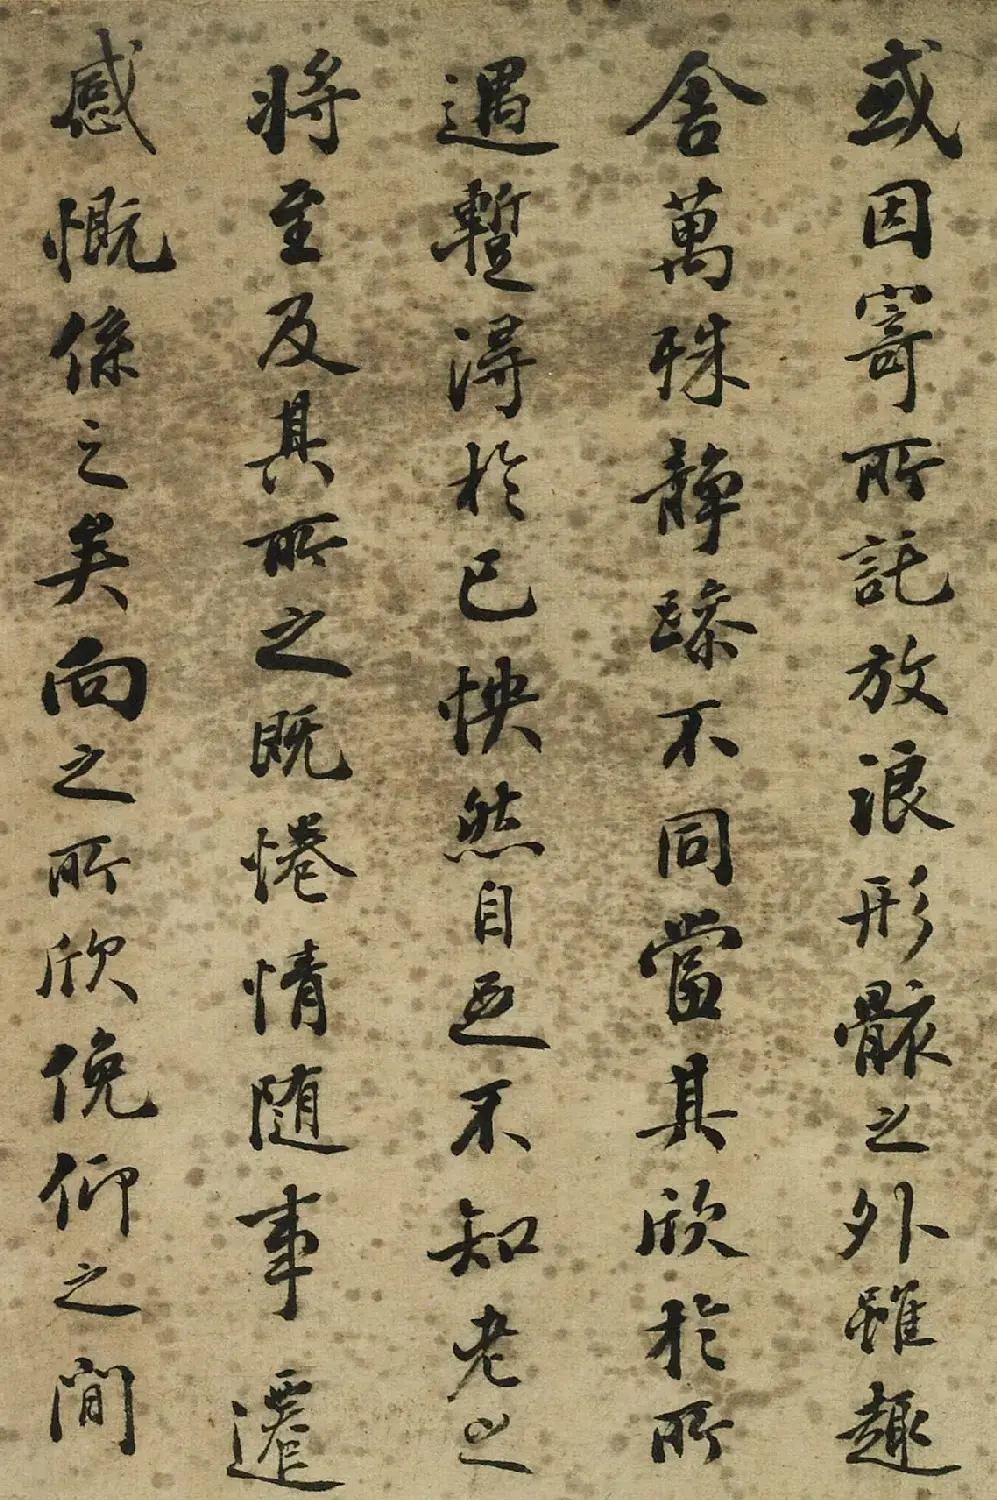 或因寄所託放浪形骸之外雖趣
舍萬殊靜躁不同當其欣於所
遇蹔得於己怏然自足不知老之
將至及其所之既惓情隨事遷
感慨係之矣向之所欣俛仰之間